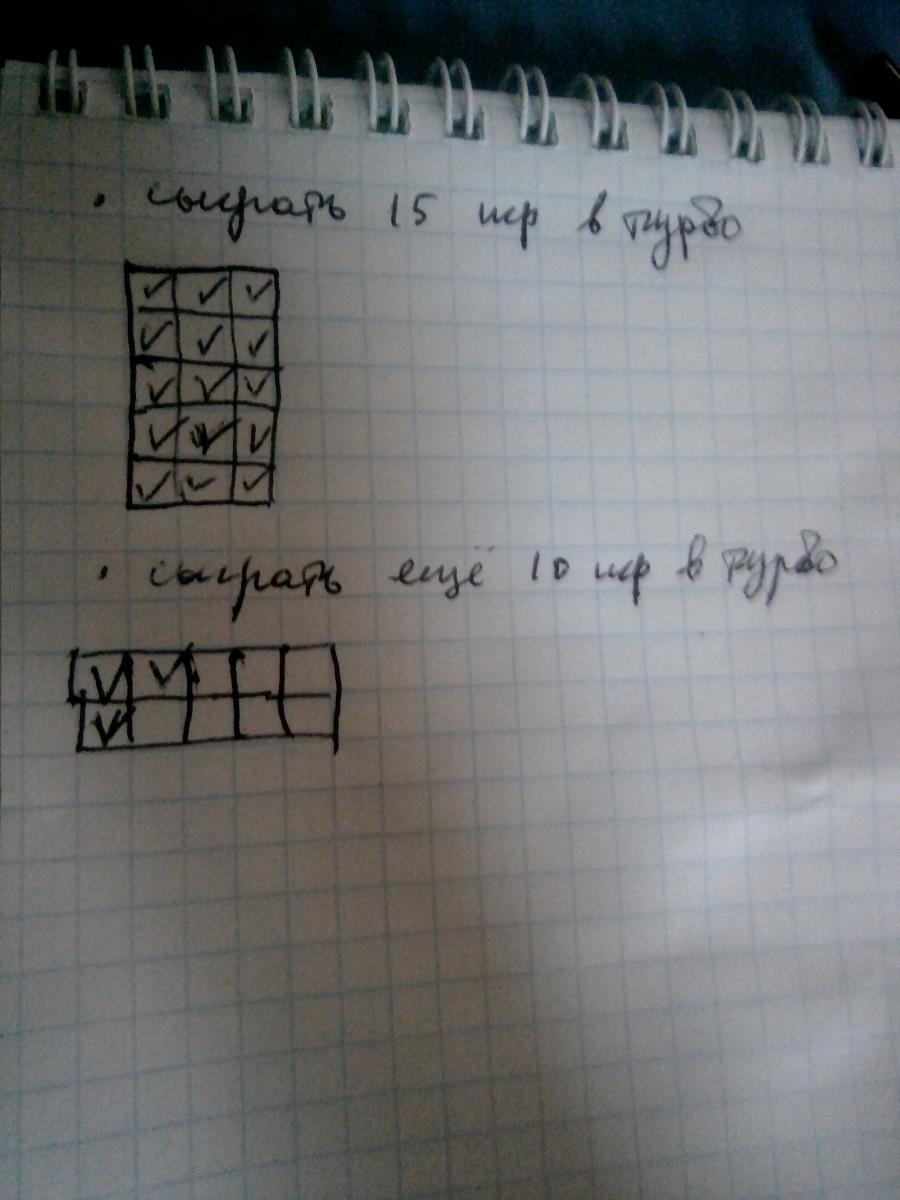 • сыграть 15 игр в турбо
• сыграть ещё 10 игр в турбо